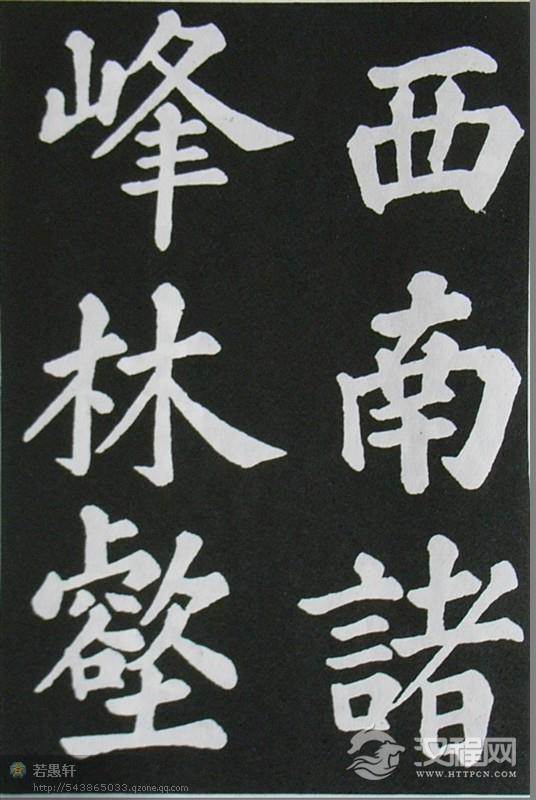 西南諸
峰林壑
若愚轩
http://543865033.qzone.qq.com
汉程网
WWW.HTTPCN.COM